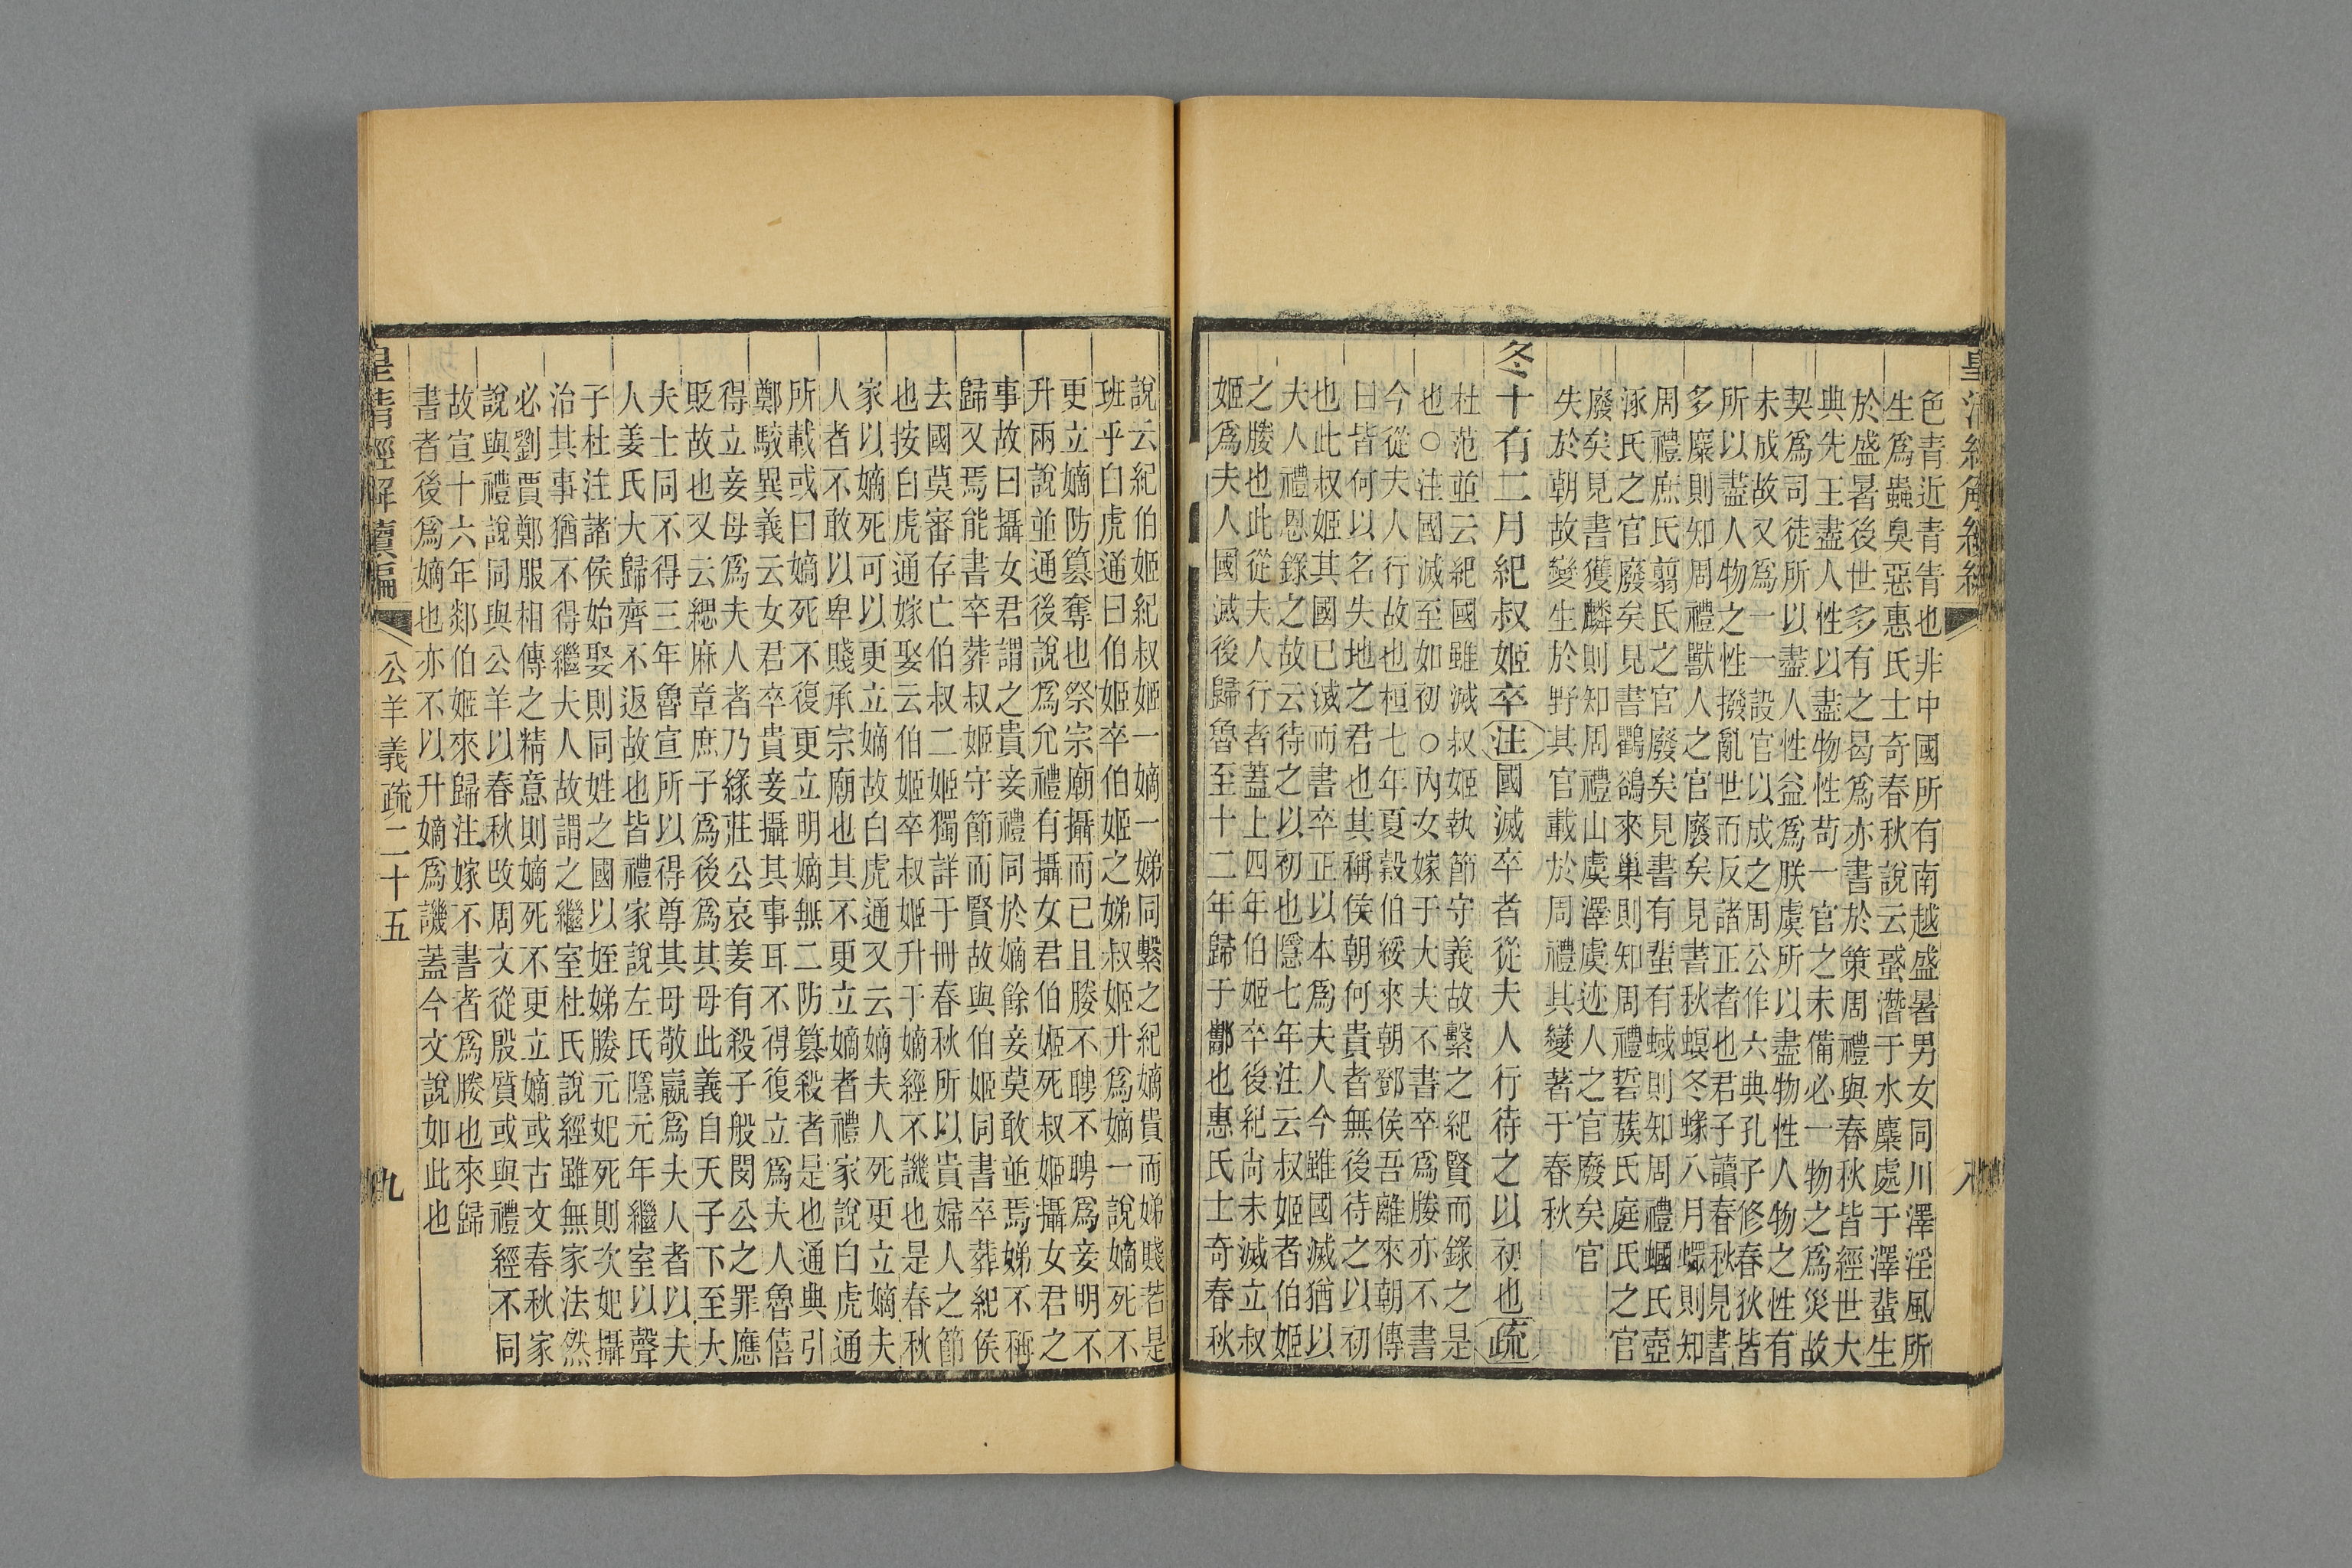 皇清經解續編
八
色青近青眚也非中國所有南越盛暑男女同川澤淫風所
生爲蟲臭惡惠氏士奇春秋說云蜚潛于水麋處于澤蜚生
於盛暑後世多有之曷爲亦書於策周禮與春秋皆經世大
典先王盡人性以盡物性苟一官之未備必一物之爲災故
契爲司徒所以盡人性益爲朕虞所以盡物性人物之性有
未成故又爲一一設官以成之周公作六典孔子修春狄皆
所以盡人物之性撥亂世而反諸正者也君子讀春秋見書
多麋則知周禮獸人之官廢矣見書秋螟冬蝝八月螺則知
周禮庶氏翦氏之官廢矣見書有蜚有蜮則知周禮蟈氏壺
涿氏之官廢矣見書鸜鵒來巢則知周禮硩蔟氏庭氏之官
廢矣見書獲麟則知周禮山虞澤虞迹人之官廢矣官
失於朝故變生於野其官載於周禮其變著于春秋
冬十有二月紀叔姬卒注國滅卒者從夫人行待之以初也疏
杜范並云紀國雖滅叔姬執節守義故繫之紀賢而錄之是
也○注國滅至如初○內女嫁于大夫不書卒爲媵亦不書
今從夫人行故也桓七年夏穀伯綏來朝鄧侯吾離來朝傳
曰皆何以名失地之君也其稱侯朝何貴者無後待之以初
也此叔姬其國已滅而書卒正以本爲夫人今雖國滅猶以
夫人禮恩錄之故云待之以初也隱七年注云叔姬者伯姬
之媵也此從夫人行者蓋上四年伯姬卒後紀尚未滅立叔
姬爲夫人國滅後歸魯至十二年歸于酅也惠氏士奇春秋
說云紀伯姬紀叔姬一嫡一娣同繫之紀嫡貴而娣賤若是
班乎白虎通曰伯姬卒伯姬之娣叔姬升爲嫡一說嫡死不
更立嫡防篡奪也祭宗廟攝而已且媵不聘不聘爲妾明不
升兩說並通後說爲允禮有攝女君伯姬死叔姬攝女君之
事故曰攝女君謂之貴妾禮同於嫡餘妾莫敢並焉娣不稱
歸又焉能書卒葬叔姬守節而賢故與伯姬同書卒葬紀侯
去國莫審存亡伯叔二姬獨詳于冊春秋所以貴婦人之節
也按白虎通嫁娶云伯姬卒叔姬升于嫡經不譏也是春秋
家以嫡死可以更立嫡故白虎通又云嫡夫人死更立嫡夫
人者不敢以卑賤承宗廟也其不更立嫡者禮家說白虎通
所載或曰嫡死不復更立明嫡無二防篡殺者是也通典引
鄭駮異義云女君卒貴妾攝其事耳不得復立爲夫人魯僖
得立妾母爲夫人者乃緣莊公哀姜有殺子般閔公之罪應
貶故也又云緦麻章庶子爲後爲其母此義自天子下至大
夫士同不得三年魯宣所以得尊其母敬嬴爲夫人者以夫
人姜氏大歸齊不返故也皆禮家說左氏隱元年繼室以聲
子杜注諸侯始娶則同姓之國以姪娣媵元妃死則次妃攝
治其事猶不得繼夫人故謂之繼室杜氏說經雖無家法然
必劉賈鄭服相傳之精意則嫡死不更立嫡或古文春秋家
說與禮說同與公羊以春秋改周文從殷質或與禮經不同
故宣十六年郯伯姬來歸注嫁不書者爲媵也來歸
書者後爲嫡也亦不以升嫡爲譏蓋今文說如此也
皇清經解續編
公羊義疏二十五
九